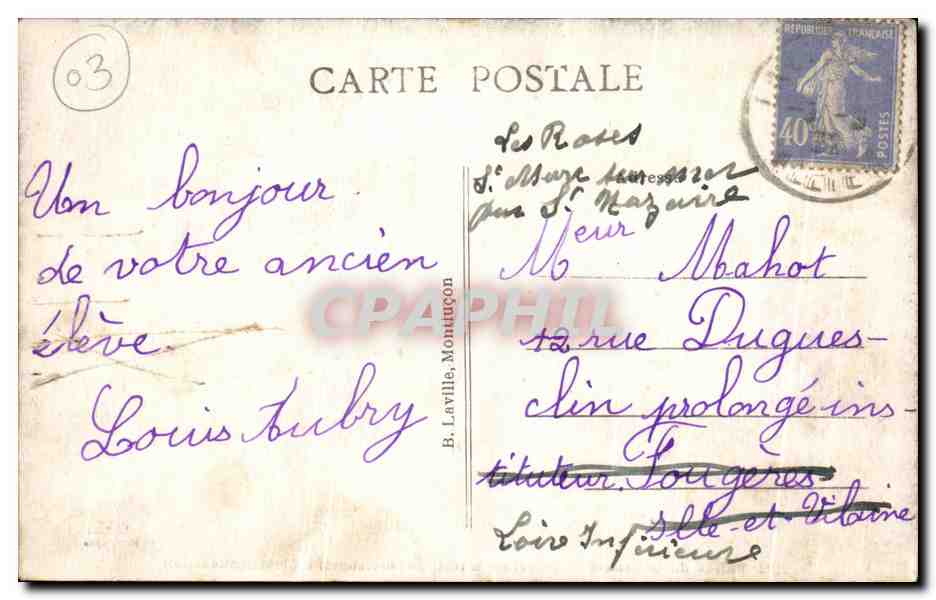 03
CARTE POSTALE
REPUBLIQUE FRANÇAISE
40c
POSTES
Un bonjour
de votre ancien
élève.
Louis Aubry
B. Laville, Montluçon
Les Roses
St Marc sur mer
par St Nazaire
Adresse
Meur Mahot
12 rue Dugues-
clin prolongé ins-
tituteur. Fougères
Ille-et-Vilaine
Loire Inférieure
CPAPHIL